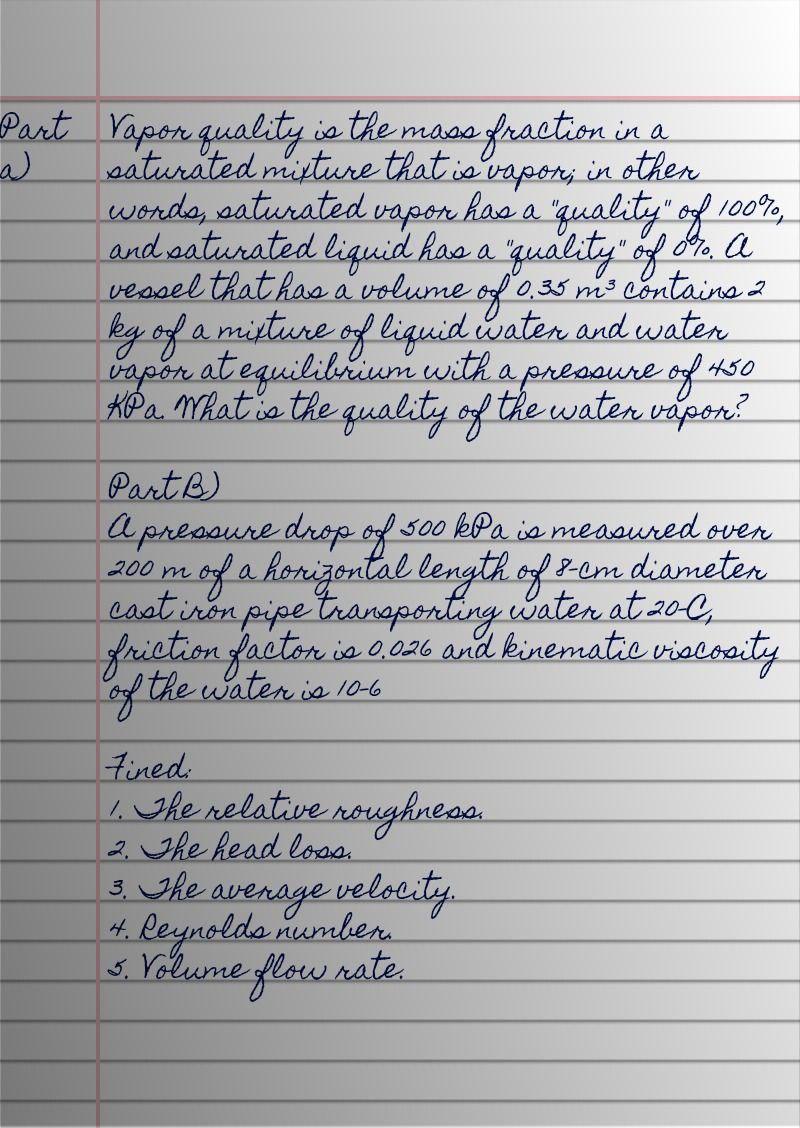 Part
a)
Vapor quality is the mass fraction in a
saturated mixture that is vapor; in other
words, saturated vapor has a "quality" of 100%,
and saturated liquid has a "quality" of 0%. A
vessel that has a volume of 0.35 m³ contains 2
kg of a mixture of liquid water and water
vapor at equilibrium with a pressure of 450
KPa. What is the quality of the water vapor?
Part B)
A pressure drop of 500 kPa is measured over
200 m of a horizontal length of 8-cm diameter
cast iron pipe transporting water at 20-C,
friction factor is 0.026 and kinematic viscosity
of the water is 10-6
Fined:
1. The relative roughness.
2. The head loss.
3. The average velocity.
4. Reynolds number.
5. Volume flow rate.